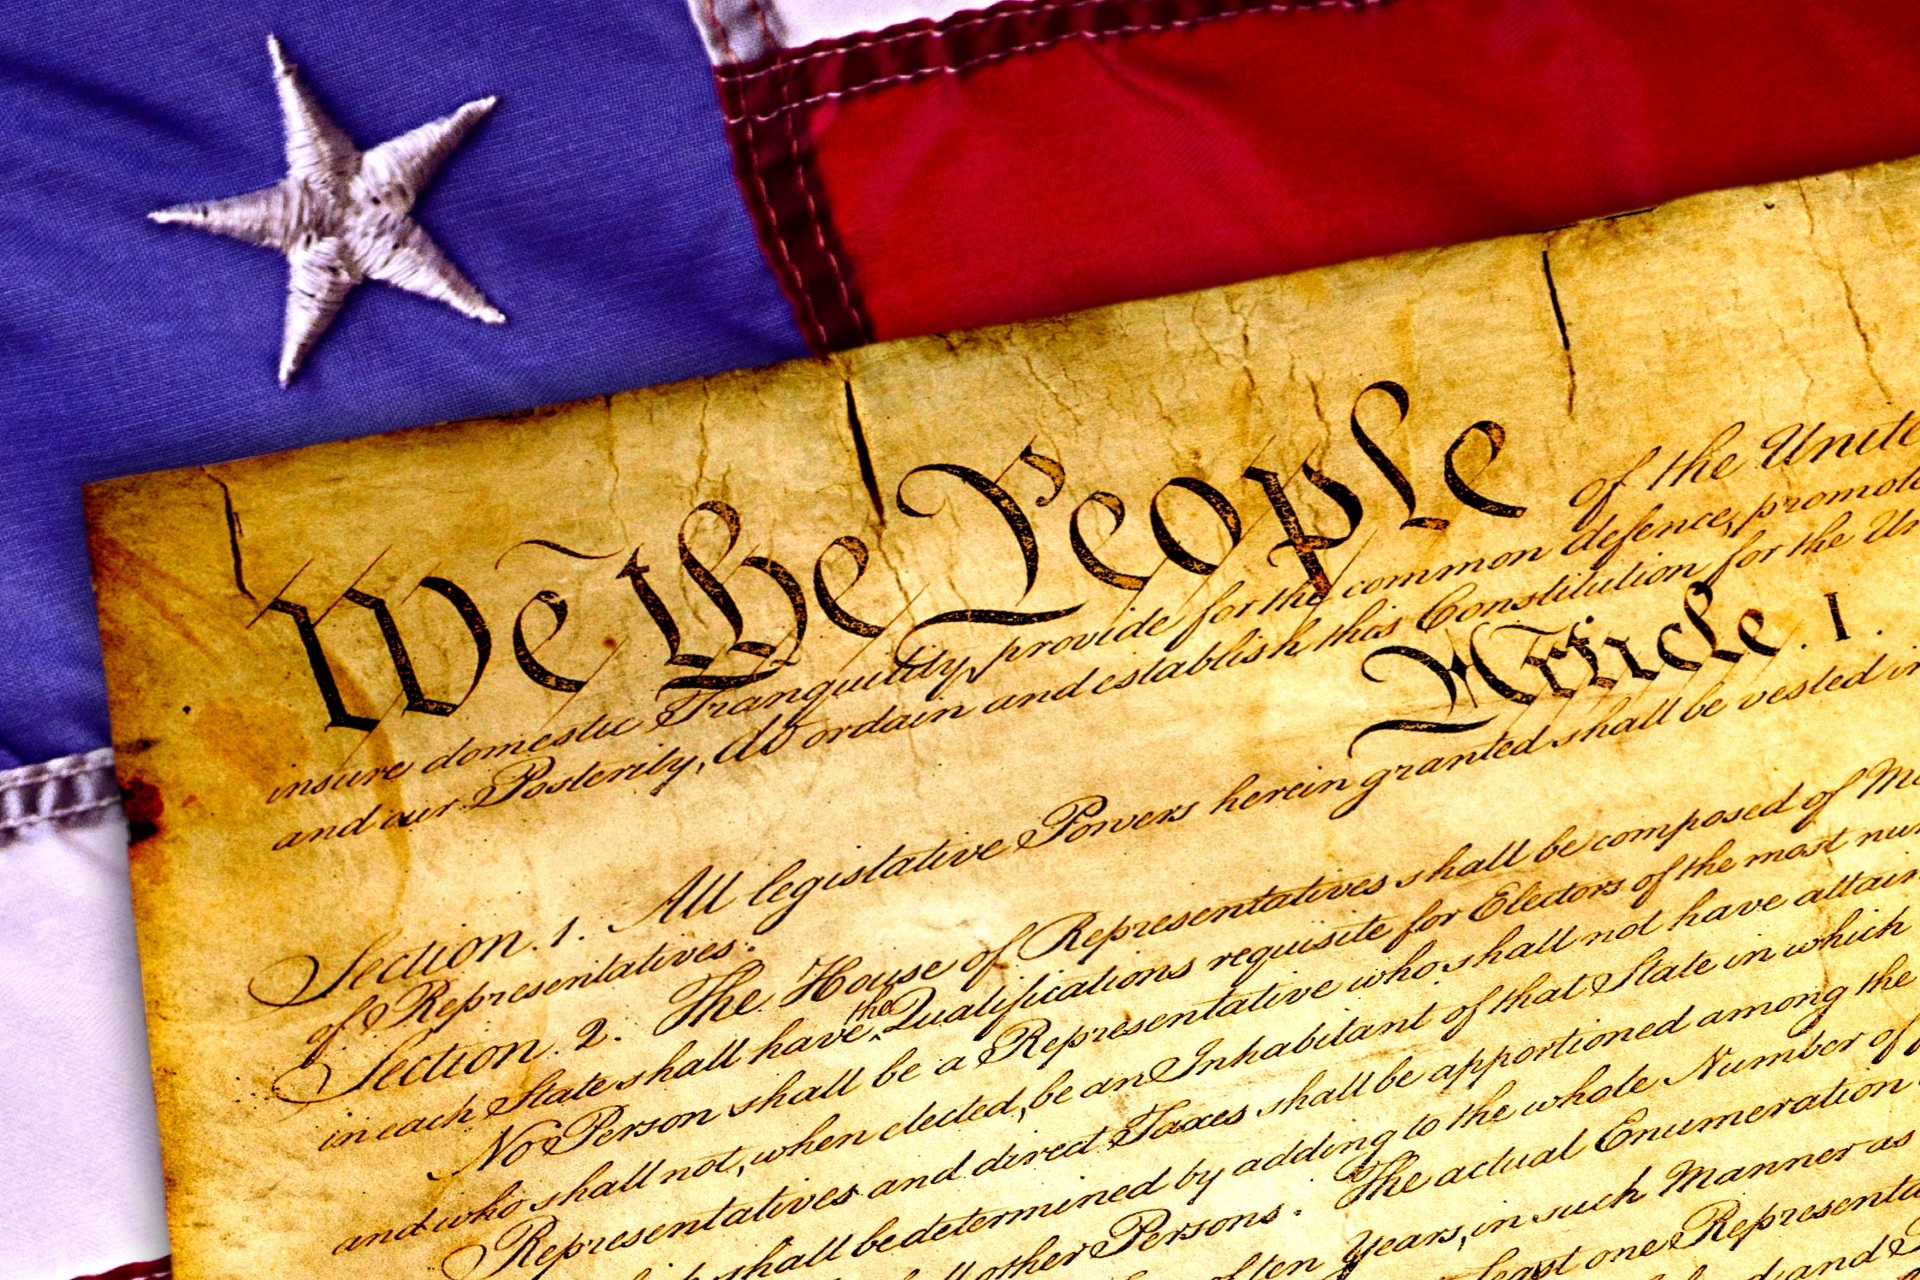 We the People of the Unite
insure domestic Tranquility, provide for the common defence, promote
and our Posterity, do ordain and establish this Constitution for the Un
Article. I.
Section. 1. All legislative Powers herein granted shall be vested in
of Representatives.
Section. 2. The House of Representatives shall be composed of Me
in each State shall have the Qualifications requisite for Electors of the most nu
No Person shall be a Representative who shall not have attain
and who shall not, when elected, be an Inhabitant of that State in which
Representatives and direct Taxes shall be apportioned among the
shall be determined by adding to the whole Number of
other Persons. The actual Enumeration
of ten Years, in such Manner as
least one Representa
and